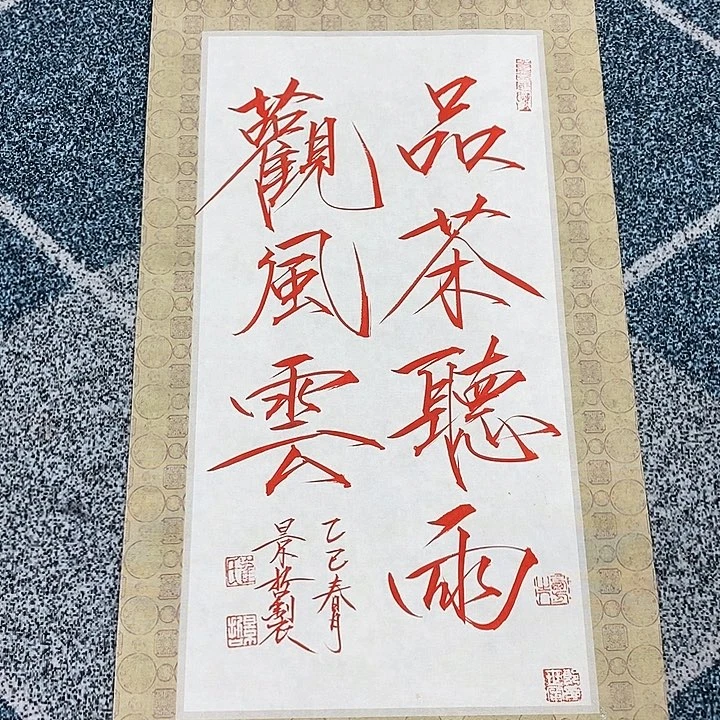 品茶聽雨
觀風雲
乙巳春月
景於製